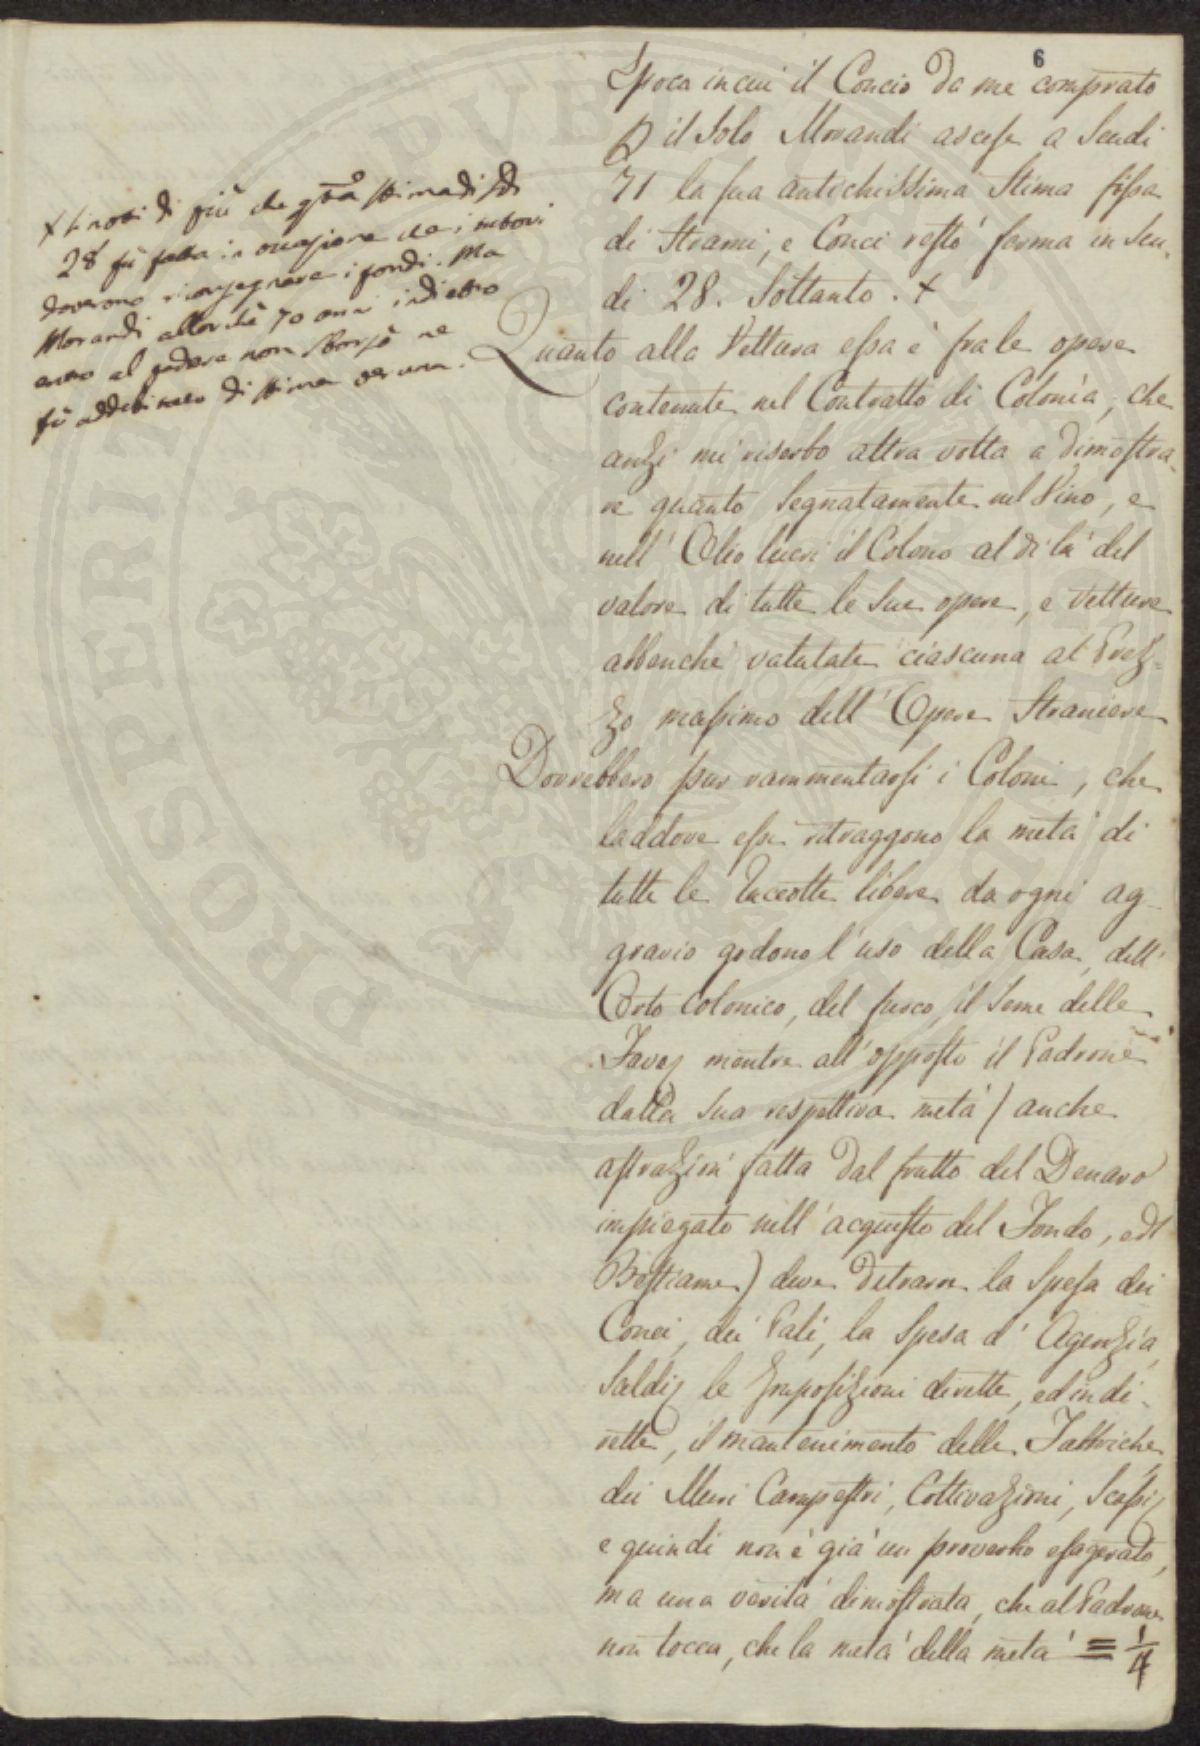 6
Epoca in cui il Concio da me comprato
p il Solo Morandi ascese a Scudi
71 la sua antichissima Stima fissa
di Strami, e Conci restò ferma in Scu-
di 28. Soltanto. +
+ Si noti di più che qta stima di Sdi
28 fù fatta in occasione che i nuovi
dovevono riconsegnare i fondi. Ma
Morandi allorchè 70 anni indietro
entrò al podere non sborsò ne
fù addebitato di stima veruna.
Quanto alla Vettura essa è fra le opere
contenute nel Contratto di Colonìa, che
anzi mi riserbo altra volta a dimostra-
re quanto Segnatamente nel Vino, e
nell' Olio lucri il Colono al di là del
valore di tutte le Sue opere, e Vetture
abbenchè valutate ciascuna al Prez-
zo massimo dell' Opere Straniere
Dovrebbero pur rammentarsi i Coloni, che
laddove essi ritraggono la metà di
tutte le Raccolte libere da ogni ag-
gravio godono l'uso della Casa, dell'
Orto colonico, del fuoco, il Seme delle
Fave, mentre all'opposto il Padrone
dalla Sua respettiva metà (anche
astrazion fatta dal frutto del Denaro
impiegato nell'acquisto del Fondo, e del
Bestiame) deve detrarre la Spesa dei
Conci, dei Pali, la Spesa d' Agenzìa,
Saldi, le Imposizioni dirette, ed indi-
rette, il mantenimento delle Fabbriche,
dei Muri Campestri, Coltivazioni, Scassi,
e quindi non è già un proverbio esagerato,
ma una verità dimostrata, che al Padrone
non tocca, che la metà della metà = 1/4
PROSPERITÀ PUBBLICA